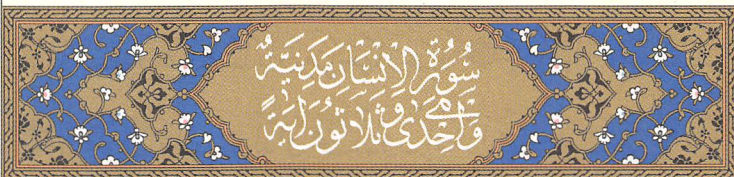 سُورَةُ الْإِنْسَانِ مَدَنِيَّةٌ
وَهِيَ إِحْدَى وَثَلَاثُونَ آيَةً